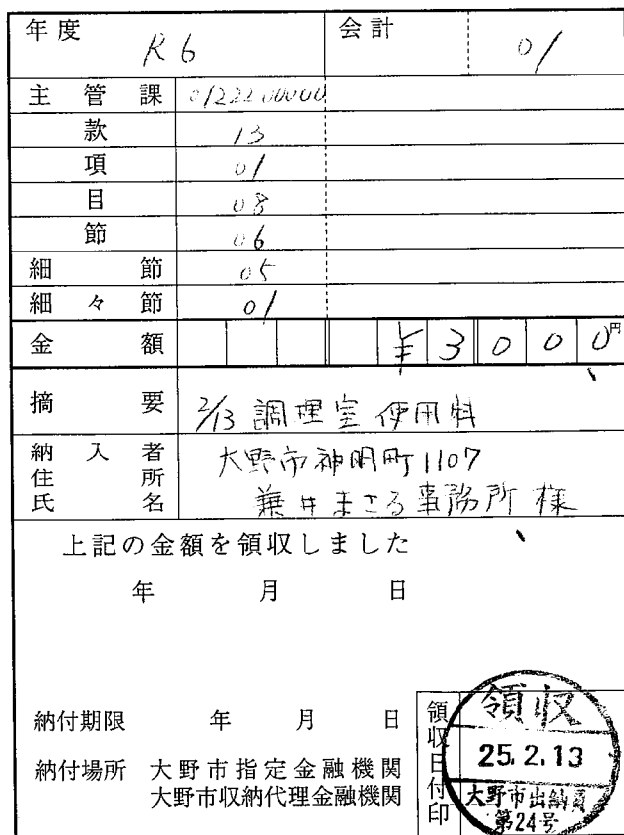 年度 R6 会計 01
主管課 0122200000
款 13
項 01
目 08
節 06
細節 05
細々節 01
金額 ¥3000円
摘要 2/13 調理室使用料
納入者 住所 氏名 大野市神明町1107
兼井まさる事務所 様
上記の金額を領収しました
年 月 日
納付期限 年 月 日
納付場所 大野市指定金融機関
大野市収納代理金融機関
領収日付印
領収
25.2.13
大野市出納員
第24号